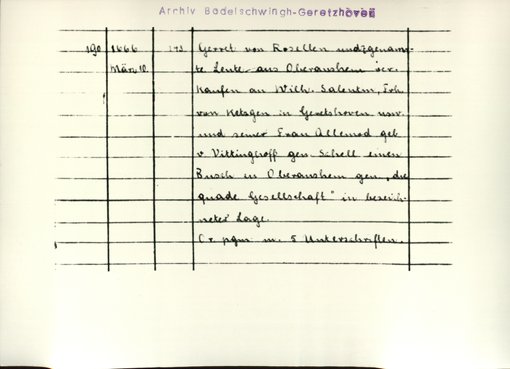 Archiv Bodelschwingh-Geretzhoven
190 1666 März 10. Gerret von Rosellen und genann-
te Leute aus Oberaushem ver-
kaufen an Wilh. Salentin, Frh.
von Metsgen in Geretshoven usw.
und seiner Frau Allemod geb.
v Vittinghoff gen. Schell einen
Busch in Oberaushem gen. „die
quade Gesellschaft" in bezeich-
neter Lage.
Or. pgm. m. 5 Unterschriften.